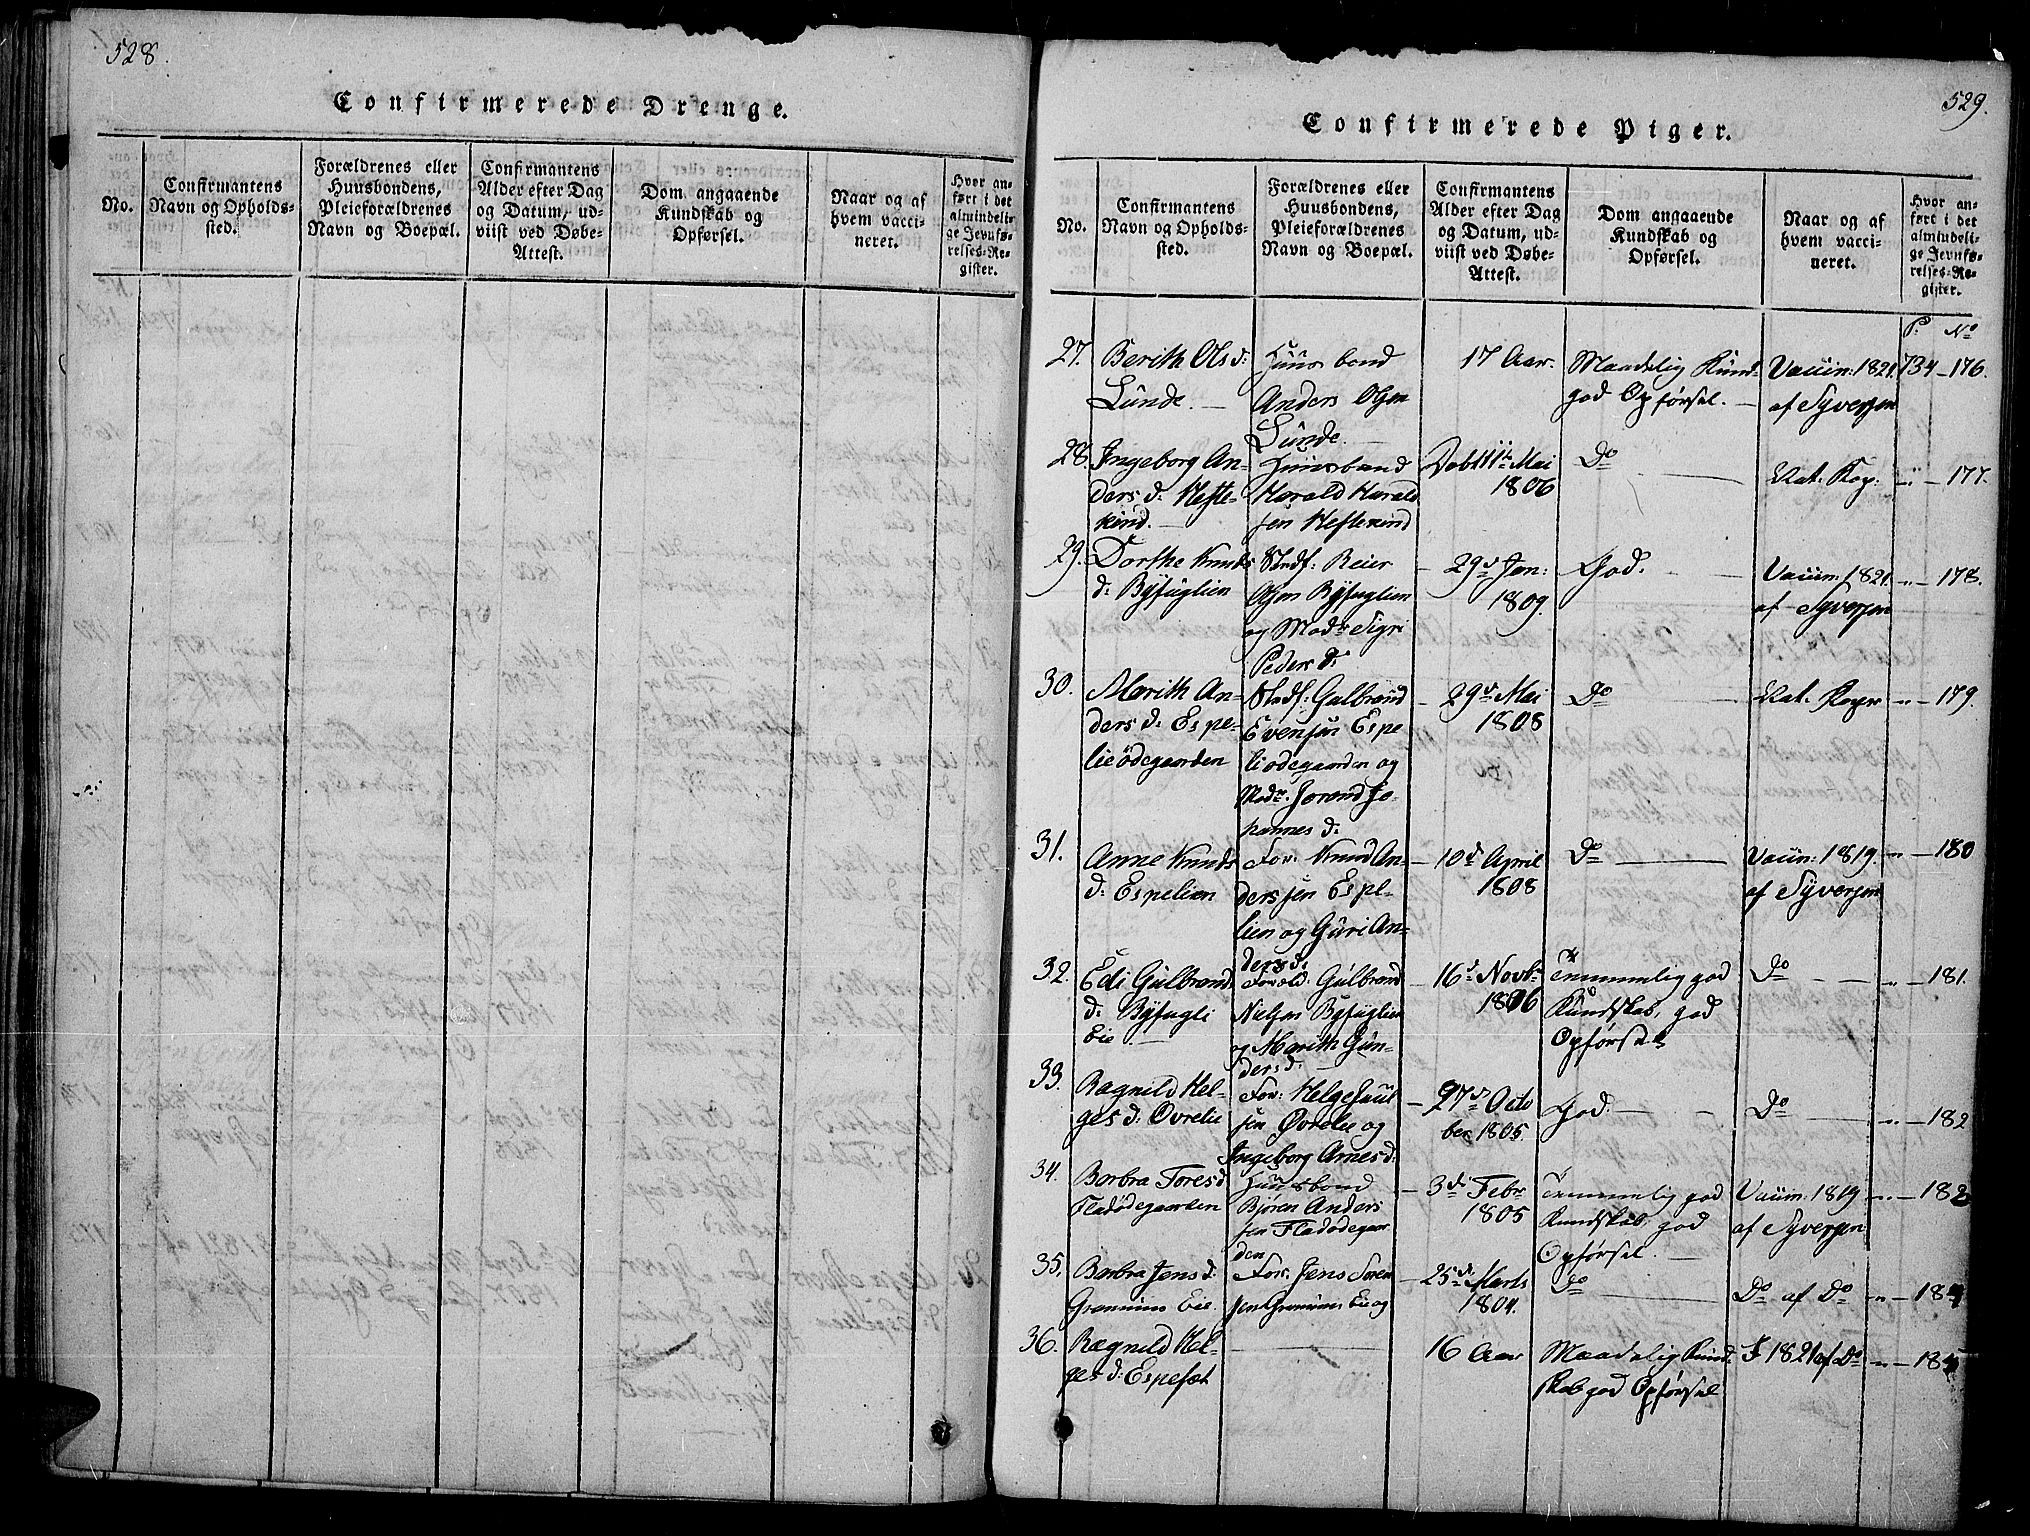 528.
Confirmerede Drenge.
No.
Confirmantens
Navn og Opholds-
sted.
Forældrenes eller
Huusbondens,
Pleieforældrenes
Navn og Boepæl.
Confirmantens
Alder efter Dag
og Datum, ud-
viist ved Døbe-
Attest.
Dom angaaende
Kundskab og
Opførsel.
Naar og af
hvem vacci-
neret.
Hvor an-
ført i det
almindeli-
ge Jevnfø-
relses-Re-
gister.
529.
Confirmerede Piger.
No.
Confirmantens
Navn og Opholds-
sted.
Forældrenes eller
Huusbondens,
Pleieforældrenes
Navn og Boepæl.
Confirmantens
Alder efter Dag
og Datum, ud-
viist ved Døbe-
Attest.
Dom angaaende
Kundskab og
Opførsel.
Naar og af
hvem vacci-
neret.
Hvor an-
ført i det
almindeli-
ge Jevnfø-
relses-Re-
gister.
P. No
27.
Berith Ols d:
Lunde. —
Huusbond
Anders Olsen
Lunde. —
17 Aar.
Maadelig Kund-
god Opførsel. —
Vaccin: 1821.
af Syversen
734 – 176.
28.
Ingeborg An-
ders d: Hefte-
kind. —
Huusbond
Harald Harald
sen Heftekind
Døbt 11te Mai
1806
Do —
Nat. Kop.
" – 177.
29.
Dorthe Knuds
d: Byfuglien
Stedf: Reier
Olsen Byfuglien
og Modr Sigri
Peders d:
– 29d Jan:
1809.
God. —
Vaccin: 1821.
af Syversen
" – 178.
30.
Marith An-
ders d: Espe-
lieödegaarden
Stedf: Gulbrand
Evensen Espe-
lieodegaarden og
Modr. Jorand Jo-
hannes d:
– 29d Mai
1808
Do —
Nat. Koper
" – 179.
31.
Anne Knuds
d: Espelien
For: Knud An-
dersen Espe-
lien og Guri An-
ders d:
– 10d April
1808
Do —
Vaccin: 1819.
af Syversen
" – 180
32.
Edi Gulbrand
d: Byfugli
Eie
Foræld: Gulbrand
Nielsen Byfuglien
og Marith Gun-
ders d:
– 16d Novbr
1806
Temmmelig god
Kundskab, god
Opførsel
Do —
" – 181.
33.
Ragnild Hel-
ges d: Øvrelie
For: Helge Juul
sen Øvrelie og
Ingeborg Arnes d:
– 27d Octo
ber 1805
God. —
Do —
" – 182
34.
Barbra Tores d
Fladödegaarden
Huusbond
Bjøren Anders
sen Fladodegaar
den
– 3d Febr
1805
Temmmelig god
Kundskab, god
Opførsel. —
Vaccin: 1819
af Syversen
" – 183
35.
Barbra Jens d:
Eie.
For: Jens Soren
sen Eie og
– 25d Marts
1804.
Do —
Do af Do
" – 184
36.
Ragnild Hel-
ges d: Espeset
—
16 Aar
Maadelig Kund-
skab god Opførsel
I 1821 af Do
" – 185